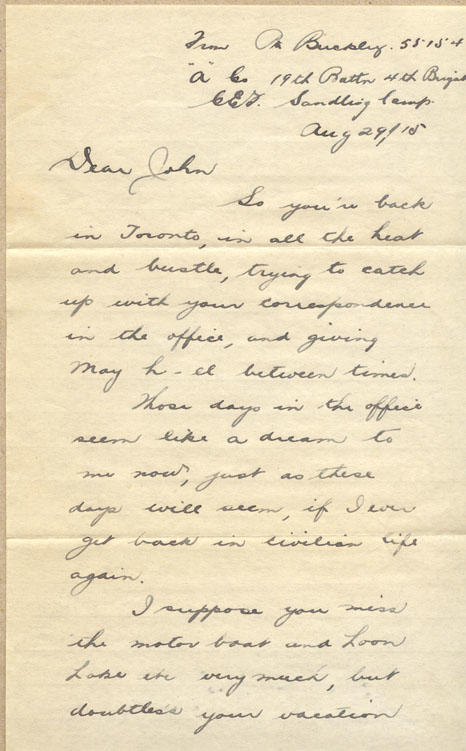 From Pte Buckley. 55154
"A" Co 19th Battn 4th Brigade
C.E.F. Sandling Camp.
Aug 29/15
Dear John
So you're back
in Toronto, in all the heat
and bustle, trying to catch
up with your correspondence
in the office, and giving
May h-el between times.
Those days in the office
seem like a dream to
me now, just as these
days will seem, if I ever
get back in civilian life
again.
I suppose you miss
the motor boat and Loon
Lake etc very much, but
doubtless your vacation